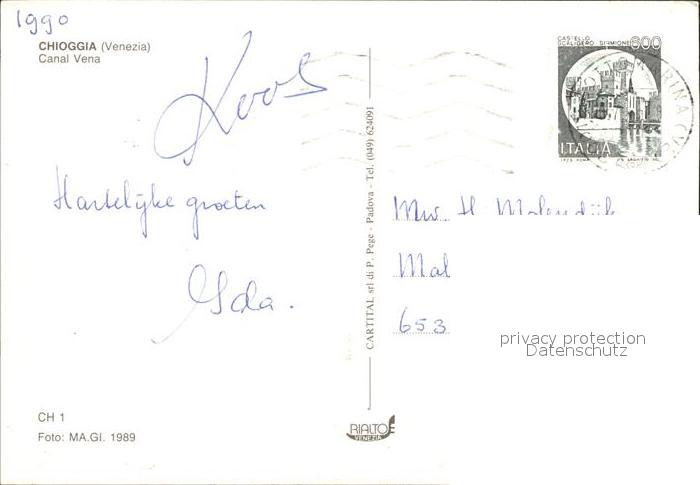 1990
CHIOGGIA (Venezia)
Canal Vena
Koos
Hartelijke groeten
Ida.
CH 1
Foto: MA.GI. 1989
CARTITAL srl di P. Pege - Padova - Tel. (049) 624091
RIALTO
VENEZIA
CASTELLO
SCALIGERO SIRMIONE 600
ITALIA
MARINA (VE)
Mw. H
Mal
653
privacy protection
Datenschutz